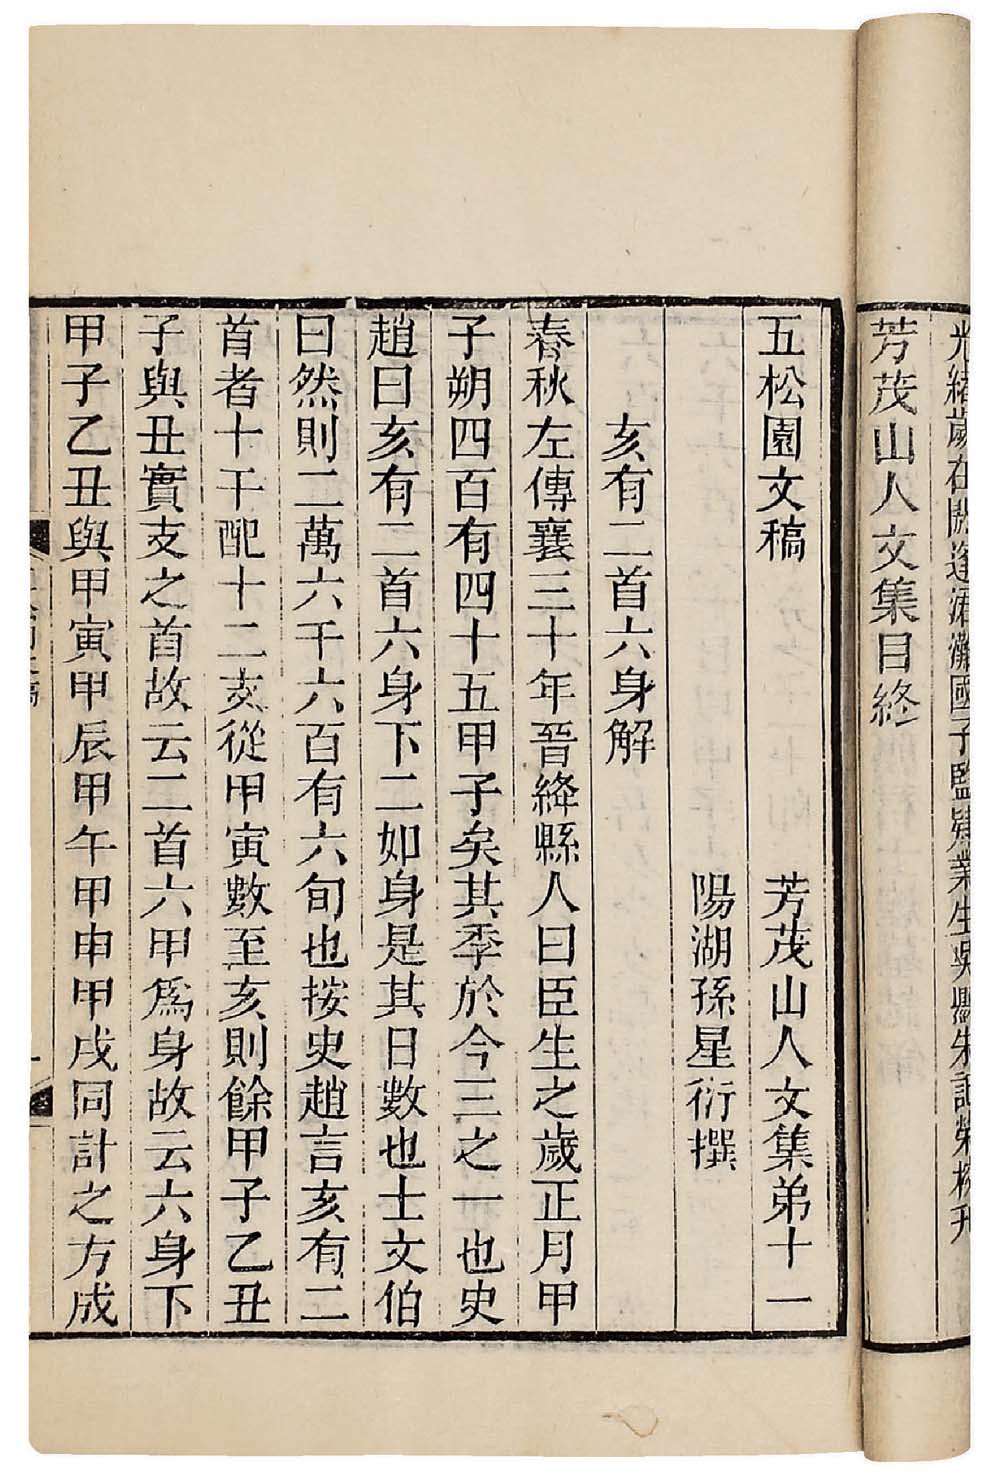 光緒歲在閼逢涒灘國子監肄業生吳縣朱記榮校刊
芳茂山人文集目終
五松園文稿 芳茂山人文集弟十一
陽湖孫星衍撰
亥有二首六身解
春秋左傳襄三十年晉絳縣人曰臣生之歲正月甲
子朔四百有四十五甲子矣其季於今三之一也史
趙曰亥有二首六身下二如身是其日數也士文伯
曰然則二萬六千六百有六旬也按史趙言亥有二
首者十干配十二支從甲寅數至亥則餘甲子乙丑
子與丑實支之首故云二首六甲爲身故云六身下
甲子乙丑與甲寅甲辰甲午甲申甲戌同計之方成